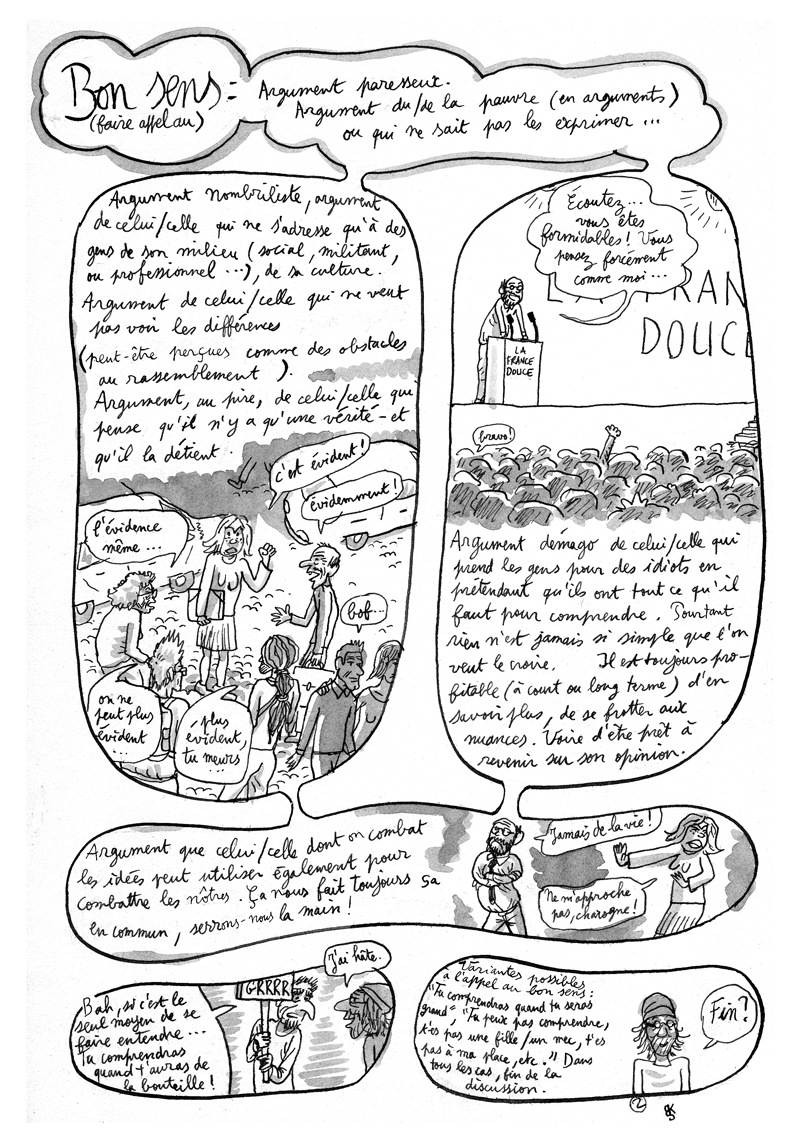 Bon sens :
(faire appel au)
Argument paresseux.
Argument du/de la pauvre (en arguments)
ou qui ne sait pas les exprimer ...
Argument nombriliste, argument
de celui/celle qui ne s'adresse qu'à des
gens de son milieu (social, militant,
ou professionnel ...), de sa culture.
Argument de celui/celle qui ne veut
pas voir les différences
(peut-être perçues comme des obstacles
au rassemblement ).
Argument, au pire, de celui/celle qui
pense qu'il n'y a qu'une vérité - et
qu'il la détient.
c'est évident !
évidemment !
l'évidence
même ...
bof...
on ne
peut plus
évident
...
plus
évident,
tu meurs
...
Écoutez...
vous êtes
formidables ! Vous
pensez forcément
comme moi ...
FRAN
DOUCE
LA
FRANCE
DOUCE
bravo !
Argument démago de celui/celle qui
prend les gens pour des idiots en
prétendant qu'ils ont tout ce qu'il
faut pour comprendre. Pourtant
rien n'est jamais si simple que l'on
veut le croire. Il est toujours pro-
fitable (à court ou long terme) d'en
savoir plus, de se frotter aux
nuances. Voire d'être prêt à
revenir sur son opinion.
Argument que celui/celle dont on combat
les idées peut utiliser également pour
combattre les nôtres. Ça nous fait toujours ça
en commun, serrons-nous la main !
Jamais de la vie !
Ne m'approche
pas, charogne !
Bah, si c'est le
seul moyen de se
faire entendre ...
Tu comprendras
quand t'auras de
la bouteille !
GRRRR
J'ai hâte.
Variantes possibles
à l'appel au bon sens :
"Tu comprendras quand tu seras
grand", "Tu peux pas comprendre,
t'es pas une fille/un mec, t'es
pas à ma place, etc." Dans
tous les cas, fin de la
discussion.
Fin ?
2